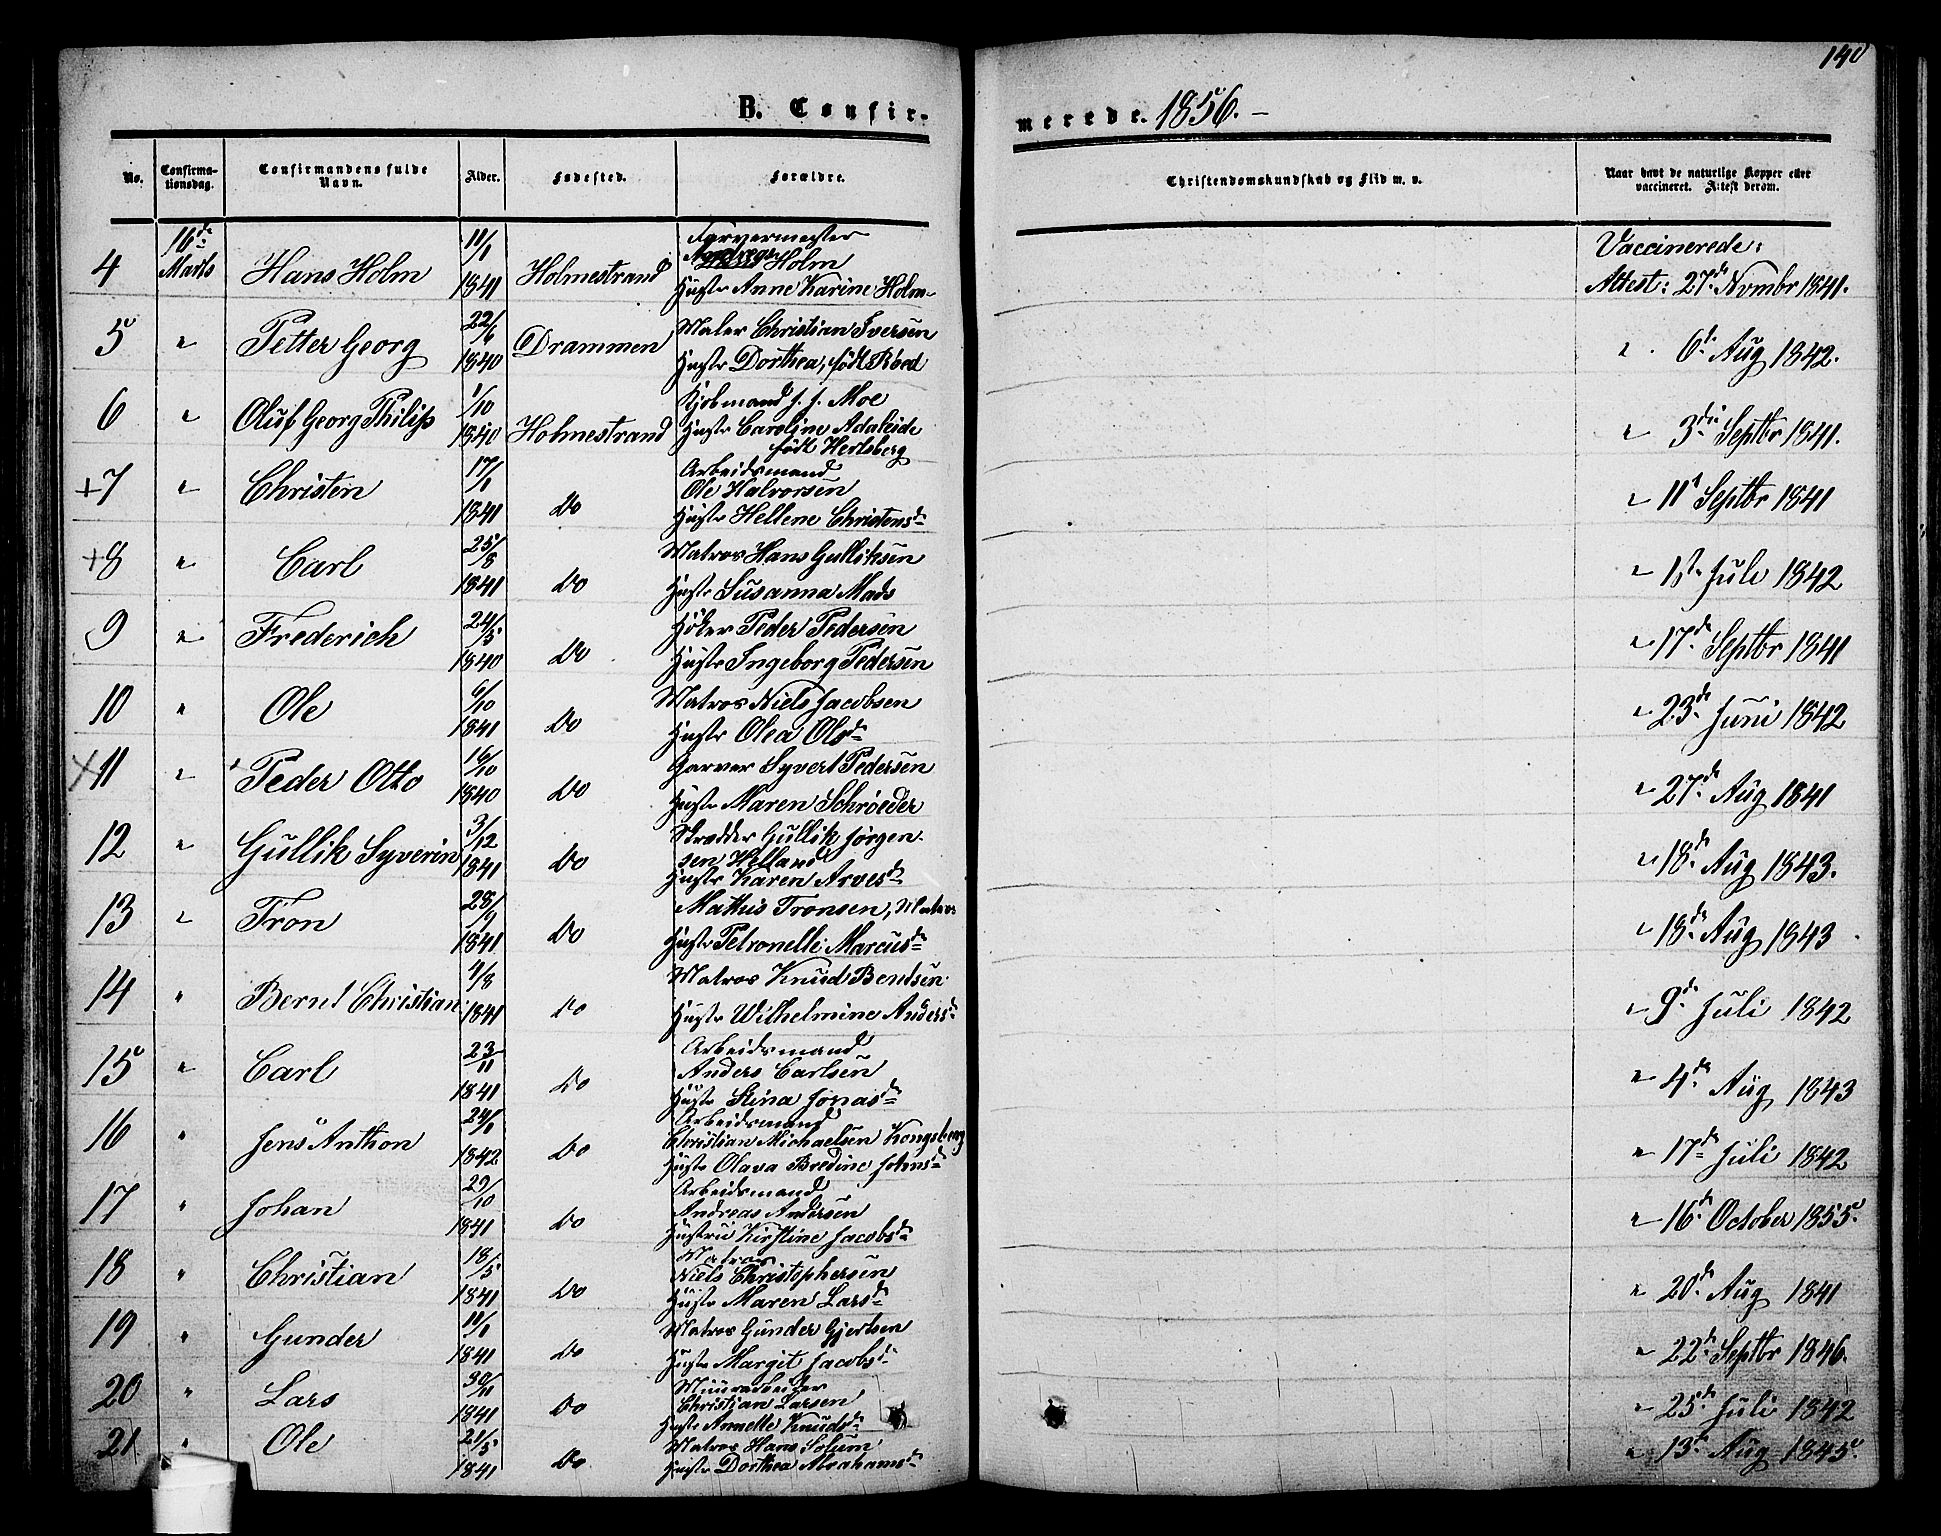 140
B. Confirmerede. 1856. –
No.
Confirmationsdag.
Confirmandens fulde Navn.
Alder.
Fødested.
Forældre.
Christendomskundskab og Flid m. v.
Naar havt de naturlige Kopper eller vaccineret. Attest derom.
4 16de Marts Hans Holm 11/1 1841 Holmestrand
Farvermester
Holm
Hustr Anne Karine Holm
Vaccinerede:
Attest: 27de Novmbr 1841.
5 " Petter Georg 22/6 1840 Drammen
Maler Christian Iversen
Hustr Dorthea, født Roed
" 6te Aug 1842.
6 " Oluf Georg Philip 1/10 1840 Holmestrand
Kjøbmand J. J. Moe
Hustr Caroline Adaleide
født Hertsberg
" 3die Septbr 1841.
+7 " Christen 17/1 1841 Do
Arbeidsmand
Ole Halvorsen
Hustr Hellene Christensd
" 11t Septbr 1841
+8 " Carl 25/8 1841 Do
Matros Hans Gulliksen
Hustr Susanna Mads
" 1ste Juli 1842
9 " Frederich 24/5 1840 Do
Høker Peder Pedersen
Hustr Ingeborg Pedersen
" 17de Septbr 1841
10 " Ole 6/10 1841 Do
Matros Niels Jacobsen
Hustr Olea Olsd
" 23de Juni 1842
+11 " Peder Otto 16/10 1840 Do
Garver Syvert Pedersen
Hustr Maren Schrøeder
" 27de Aug 1841
12 " Gullik Syverin 3/12 1841 Do
Skrædder Gullik Jørgen-
sen Helland
Hustr Karen Arvesd
" 18de Aug 1843.
13 " Tron 28/9 1841 Do
Mathis Tronsen, Matros
Hustr Petronelle Marcusd
" 18de Aug 1843
14 " Bernt Christian 4/8 1841 Do
Matros Knud Bentsen
Hustr Wilhelmine Andersd
" 9de Juli 1842
15 " Carl 23/11 1841 Do
Arbeidsmand
Anders Carlsen
Hustr Stina Jonasd
" 4de Aug 1843
16 " Jens Anthon 24/1 1842 Do
Arbeidsmand
Christian Michaelsen Kongsberg
Hustr Olava Bredine Johnsd
" 17de Juli 1842
17 " Johan 29/10 1841 Do
Arbeidsmand
Andreas Andersen
Hustrue Kirstine Jacobsd
" 16de October 1855.
18 " Christian 18/5 1841 Do
Matros
Niels Christophersen
Hustr Maren Larsd
" 20de Aug 1841
19 " Gunder 11/1 1841 Do
Matros Gunder Gjertsen
Hustr Margit Jacobsd
" 22de Septbr 1846.
20 " Lars 30/11 1841 Do
Muurarbeider
Christian Larsen
Hustr Annette Knudsd
" 25de Juli 1842
21. " Ole 21/5 1841 Do
Matros Hans Solum
Hustr Dorthea Abrahamsd
" 13de Aug 1845.